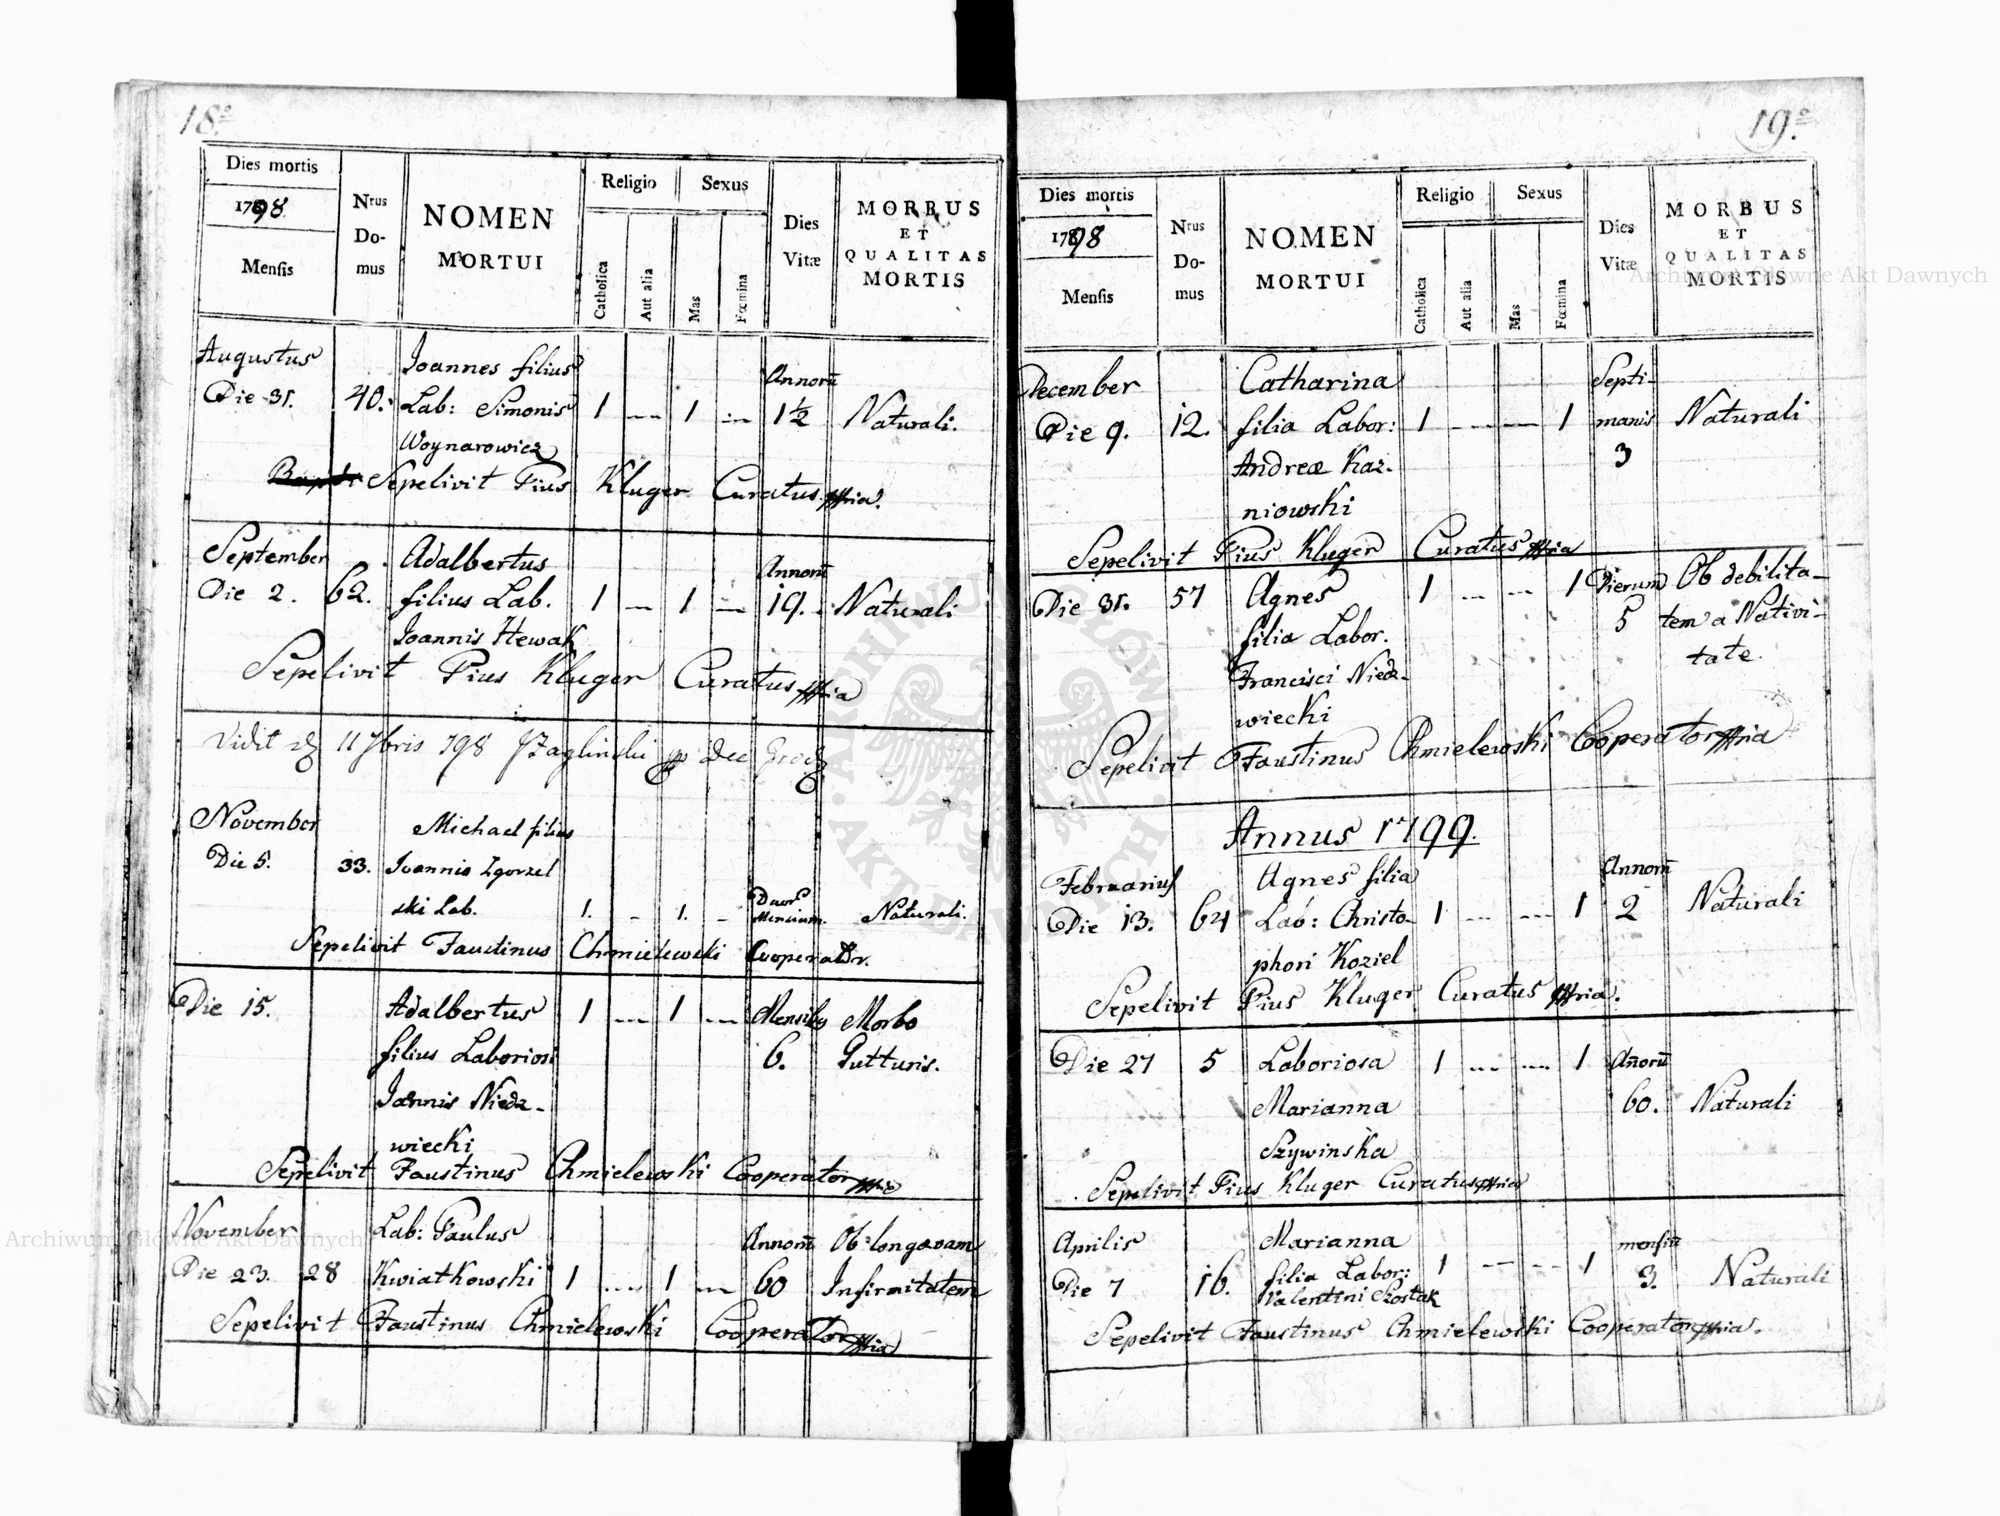 18.º
Dies mortis
1798
Mensis
Nrus Do-mus
NOMEN
MORTUI
Religio
Catholica
Aut alia
Sexus
Mas
Fœmina
Dies
Vitæ
MORBUS
ET
QUALITAS
MORTIS
Augustus Joannes filius Annorũ
Die 31. 40. Lab: Simonis 1 -- 1 -- 1½ Naturali.
Woynarowicz
Sepelivit Pius Kluger Curatus mpria.
September Adalbertus Annorũ
Die 2. 62. filius Lab. 1 -- 1 -- 19. Naturali
Joannis Hewak
Sepelivit Pius Kluger Curatus mpria
Vidit 11 7bris 798
November Michael filius
Die 5. 33. Joannis Zgorzel
ski Lab. 1. - 1. - Duor. Mensium. Naturali.
Sepelivit Faustinus Chmielewski Cooperator.
Die 15. Adalbertus 1 -- 1 -- Mensiby Morbo
filius Laboriosi 6. Gutturis.
Joannis Niedz-
wiecki
Sepelivit Faustinus Chmielewski Cooperator mpria
November Lab: Paulus Annorũ Ob longævam
Die 23. 28 Kwiatkowski 1 -- 1 -- 60 Infirmitatem
Sepelivit Faustinus Chmielewski Cooperator mpria
19.º
Dies mortis
1798
Mensis
Nrus Do-mus
NOMEN
MORTUI
Religio
Catholica
Aut alia
Sexus
Mas
Fœmina
Dies
Vitæ
MORBUS
ET
QUALITAS
MORTIS
December Catharina Septi-
Die 9. 12. filia Labor: 1 -- -- 1 manis Naturali
Andreæ Kaz- 3
niowski
Sepelivit Pius Kluger Curatus mpria
Die 31. 57 Agnes 1 -- -- 1 Dierum Ob debilita-
filia Labor. 5 tem a Nativi-
Francisci Niedz- tate.
wiecki
Sepelivit Faustinus Chmielewski Cooperator mpria
Annus 1799.
Februarius Agnes filia Annorũ
Die 13. 64 Lab: Christo- 1 -- -- 1 2 Naturali
phori Koziel
Sepelivit Pius Kluger Curatus mpria.
Die 27 5 Laboriosa 1 -- -- 1 Añorũ
Marianna 60. Naturali
Szywinska
Sepelivit Pius Kluger Curatus mpria
Aprilis Marianna mensiũ
Die 7 16. filia Labor: 1 -- -- 1 3. Naturali
Valentini Szostak
Sepelivit Faustinus Chmielewski Cooperator mpria.
Archiwum Główne Akt Dawnych
Archiwum Główne Akt Dawnych
ARCHIWUM GŁÓWNE AKT DAWNYCH